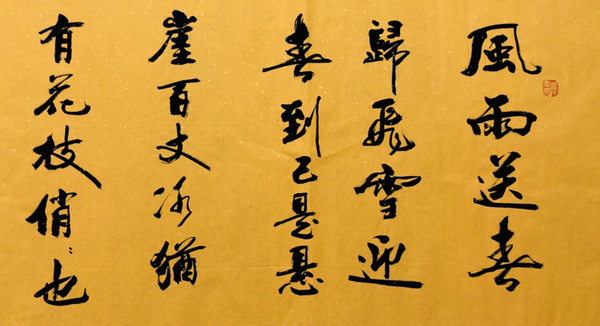 風雨送春
歸飛雪迎
春到已是懸
崖百丈冰猶
有花枝俏〻也